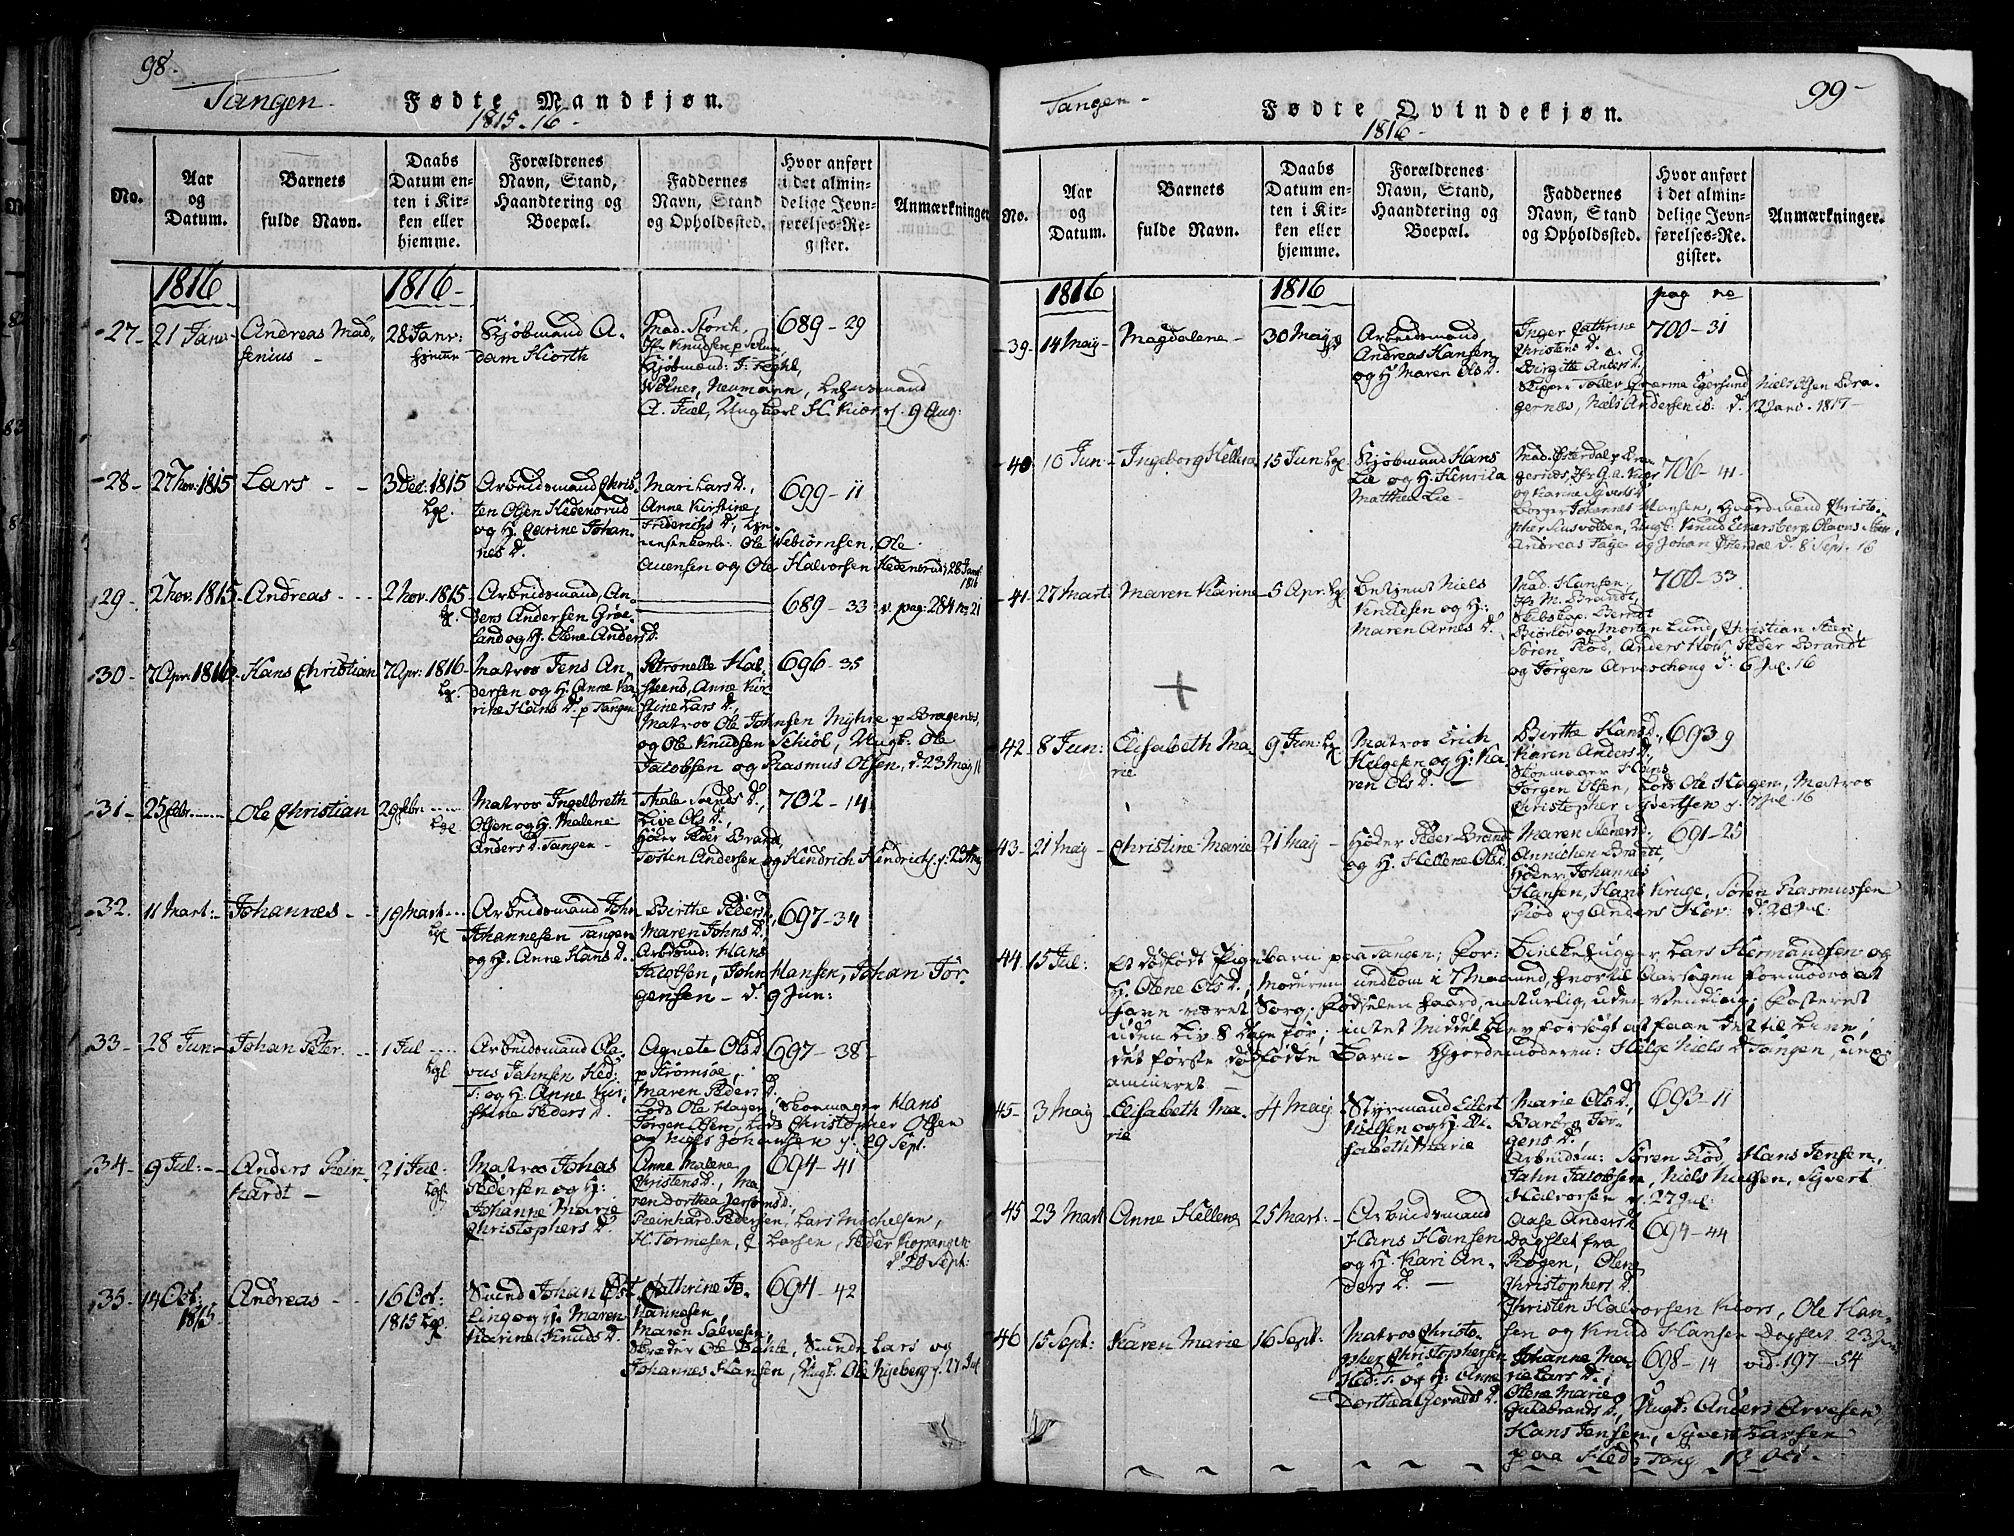 98.
Tangen.
Fødte Mandkjøn.
1815-16-
No.
Aar
og
Datum.
Barnets
fulde Navn.
Daabs
Datum en-
ten i Kir-
ken eller
hjemme.
Forældrenes
Navn, Stand,
Haandtering og
Boepæl.
Faddernes
Navn, Stand
og Opholdssted.
Hvor anført
i det almin-
delige Jevn-
førelses-Re-
gister.
Anmærkninger
1816
1816-
27-
21 Janv
Andreas Mad-
senius -
28 Janv:
hjemme
Kjøbmand A-
dam Hiorth
Mad. Storch,
Kjøbmænd:
Wølner, Neumann,
A. Juel, Ungkarl H. Kiær d. 9 Aug:
689-29
28-
27 Nov. 1815
Lars - -
3 Dec. 1815
Arbeidsmand Chris-
ten Olsen Hedensrud
og H. Carine Johan-
nes D.
Mari Lars D.,
Anne Kirstine
Friderichs D.,
Ole Webiørnsen, Ole
Auensen og Ole Halvorsen Hedensrud, 28 Janv
1816
699-11
29-
2 Nov. 1815
Andreas - - -
2 Nov. 1815
Arbeidsmand, An-
ders Andersen Grøe-
land og H. Olene Anders D.
689-33
v. pag: 284 No 21
30-
7 Apr. 1816
Hans Christian
7 Apr. 1816-
Matros Jens An-
dersen og H. Anne Ka-
rine Hans D. p Tangen
Petronelle Hal-
steens, Anne Kir-
stine Lars D.,
Matros Ole Johnsen Myhre p Bragernes,
og Ole Knudsen Schiøl, Ungk: Ole
Jacobsen og Rasmus Olsen, d. 23 Maj
696-35
31-
25 Febr.
Ole Christian
29 Febr.
Matros Ingelbreth
Olsen og H. Malene
Anders D. Tangen -
Thale Svends D.,
Live Ols D.,
Høder Peder Brandt,
Torsten Andersen og Hindrich Hindrichs.
702-14
32.
11 Mart:
Johannes - -
19 Mart
Arbeidsmand John
Johannesen Tangen
og H. Anne Hans D.
Birthe Peders D.,
Maren Johns D.
Arbsmd: Hans
Jacobsen, John Hansen, Johan Jør-
gensen - d. 9 Jun:
697-34
33-
28 Jun:
Johan Peter
1 Jul
Arbeidsmand Ola-
vus Jahnsen Hed:
T: og H. Anne Kir-
stine Peders D.
Agnete Ols D
p Strømsøe,
Maren Peders D.,
Lods Ole Hagen, Skomager Hans
Jørgen Olsen, Lods Christopher Olsen
og Niels Johansen d. 29 Sept:
697-38-
34-
9 Jul:
Anders Rein-
hardt -
21 Jul:
Matros Johas
Pedersen og H:
Johanne Marie
Christophers D.
Anne Malene
Christens D., Ma-
ren Dorthea
Reinhard Pedersen, Lars Michelsen,
H. Tormesen, C. Larsen, Peder Kopangen
d. 20 Sept:
694-41
35-
14 Oct:
1815
Andreas - -
16 Oct:
1815
Svend Johan Øst-
Ling og H: Maren
Karine Knuds D.
Cathrine Jo-
hannesen,
Maren Salvesen,
Skræder Ole Dahle, Svend Lars og
Johannes Hansen, Ungk. Ole Nyeberg d. 27 Jul
694-42
Tangen-
Fødte Qvindekjøn.
1816-
99-
No.
Aar
og
Datum.
Barnets
fulde Navn.
Daabs
Datum en-
ten i Kir-
ken eller
hjemme.
Forældrenes
Navn, Stand,
Haandtering og
Boepæl.
Faddernes
Navn, Stand
og Opholdssted.
Hvor anført
i det almin-
delige Jevn-
førelses-Re-
gister.
Anmærkninger.
1816
1816
pag No
39-
14 Maj
Magdalene -
30 Maj
Arbeidsmand,
Andreas Hansen
og H Maren Ols D.
Inger Cathrine
Christens D.
Birgitte Anders D.,
Skipper Tollev Qværme Egersund, Niels Olsen Bra-
gernæs, Niels Andersen d. 12 Janv. 1817-
700-31
40-
10 Jun
Ingeborg Hellena
15 Jun
Kjøbmand Hans
Lie og H. Henrica
Matthea Lie -
Mad. Østerdal p Bra-
gernæs,
Borger Johannes Hansen,
Andreas Fager og Johan Østerdal d. 8 Sept. 16
706-41-
41-
27 Mart:
Maren Karine
5 Apr.
Betjent Niels
Knudsen og H:
Maren Arnes D.
Mad. Hansen,
Jfr M. Brandt,
Morten Lund, Christian Steen
Søren Flod, Anders Hov, Peder Brandt
og Jørgen Arveschoug d. 6 Jul. 16
700-33
42-
8 Jun:
Elisabeth Ma-
rie
9 Jun:
Matros Erich
Helgesen og H: Ka-
ren Ols D. -
Birthe Hans D.,
Karen Anders D.,
Skomager Hans
Jørgen Olsen, Lods Ole Hagen, Matros
Christopher Syvertsen d. 17 Jul. 16
693 9
43-
21 Maj -
Christine Marie
21 Maj -
Høder Peder Brandt
og H. Hellene Ols D.
Maren Steners D.,
Annichen Brandt,
Høder: Johannes
Hansen, Hans Kruge, Søren Rasmussen
Flod og Anders Hov: d. 28 Jul:
691-25
44
15 Jul:
Et dødfødt Pigebarn paa Tangen; For: Lars Hermandsen og
H. Olene Ols D., Moderen nedkom i 7 Maaned, hvortil Aarsagen formodes at
have været Sorg; Fødselen haard, naturlig, uden Vending; Fosteret
uden Liv 8 Dage før; intet Middel blev forsøgt at faae det til Live;
det første dødfødte Barn - Gjordemoderen: Helge Niels D Tangen, uex-
amineret -
45-
3 Maj
Elisabeth Ma-
rie
4 Maj
Styrmand Eilert
Nielsen og H: Eli-
sabeth Marie
Marie Ols D.,
Barbra Jør-
gens D.,
Arbeidsm: Søren Flod, Hans Jensen,
Jahn Jacobsen, Niels Nielsen, Syvert
Halvorsen d. 27 Jul:
693-11
45
23 Mart
Anne Hellene
25 Mart:
Arbeidsmand
Hans Hansen
og H. Kari An-
ders D. -
Aase Anders D
Dagslet fra
Røgen, Olen-
Christophers D.
Christen Halvorsen Kiørs, Ole Han-
sen og Knud Hansen Dagslet. 23 Jun
694-44
46
15 Sept:
Karen Marie
16 Sept:
Matros Christo-
pher Christophersen
Hed: T. og H: Anne
Dorthea Gervalds D.
Johanne Ma-
rie Lars D.,
Olene Marie
Guldbrands D., Ungk: Anders Arvesen,
Hans Jensen, Syvert Larsen
paa Hed: Tang 13 Oct -
698-14
vid. 197-54